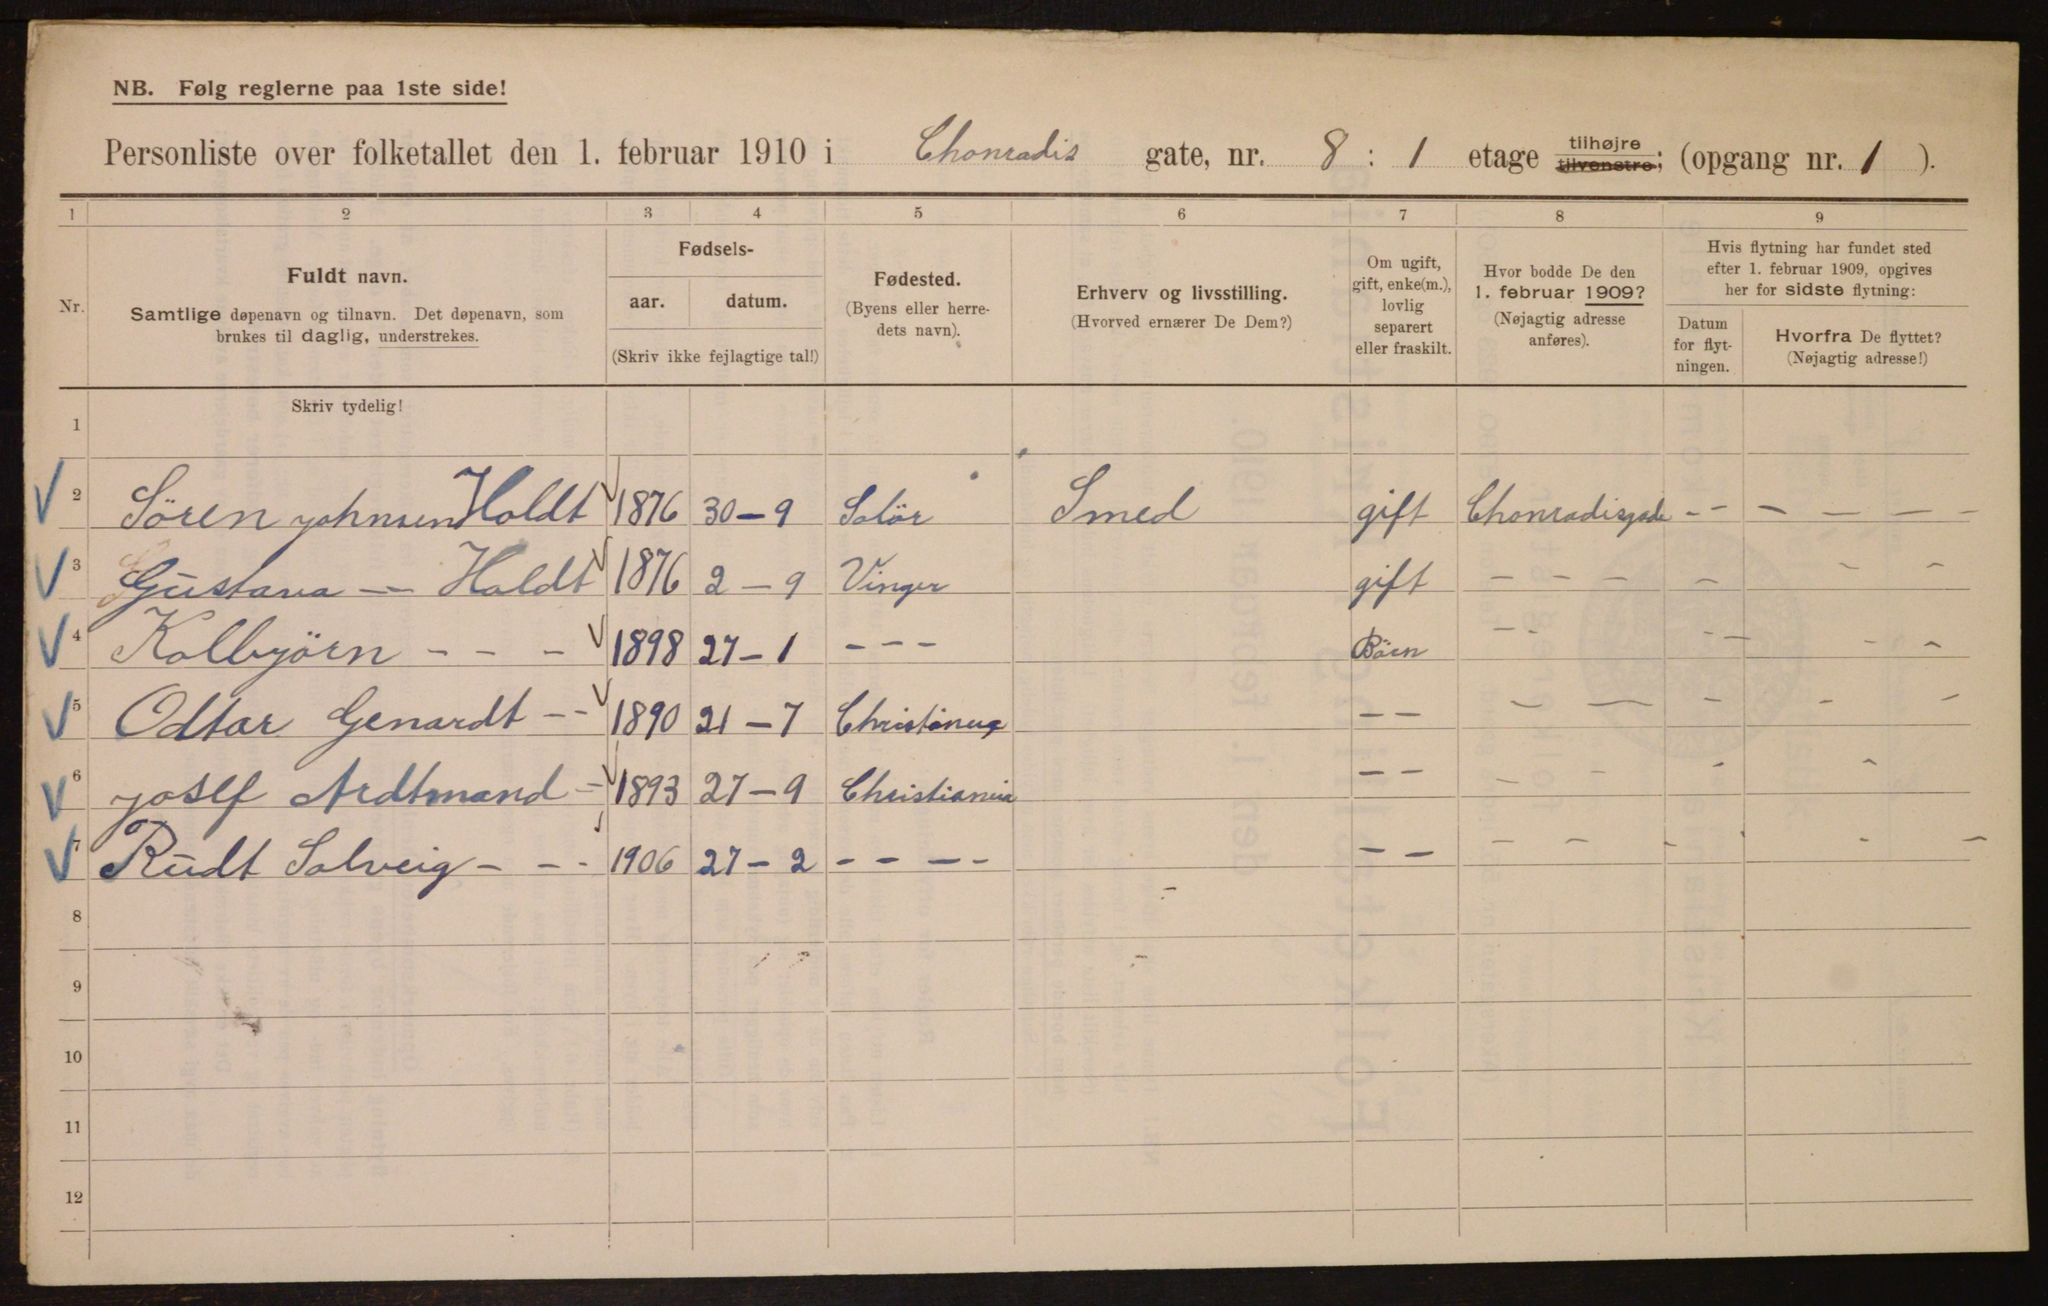 NB. Følg reglerne paa 1ste side!
Personliste over folketallet den 1. februar 1910 i Chonradis gate, nr. 8 : 1 etage tilhøjre tilvenstre; (opgang nr. 1 ).
1 2 3 4 5 6 7 8 9
Nr.
Fuldt navn.
Samtlige døpenavn og tilnavn. Det døpenavn, som
brukes til daglig, understrekes.
Fødsels-
aar. datum.
(Skriv ikke fejlagtige tal!)
Fødested.
(Byens eller herre-
dets navn).
Erhverv og livsstilling.
(Hvorved ernærer De Dem?)
Om ugift,
gift, enke(m.),
lovlig
separert
eller fraskilt.
Hvor bodde De den
1. februar 1909?
(Nøjagtig adresse
anføres).
Hvis flytning har fundet sted
efter 1. februar 1909, opgives
her for sidste flytning:
Datum
for flyt-
ningen.
Hvorfra De flyttet?
(Nøjagtig adresse!)
Skriv tydelig!
1
2 Sören johnsen Holdt 1876 30 – 9 Solör Smed gift Chonradisgade – – – – – –
3 Gustava – – Holdt 1876 2 – 9 Vinger gift – – – – – –
4 Kolbyörn – – – 1898 27 – 1 – – – Börn – – – – – –
5 Odtar Genardt – – 1890 21 – 7 Christinea – – – – – – –
6 josef Ardtmand – 1893 27 – 9 Christiania – – – – – –
7 Rudt Solveig – – – 1906 27 – 2 – – – – – – – – – – –
8
9
10
11
12